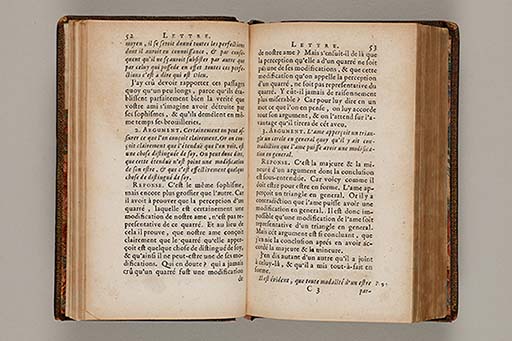 52 LETTRE.
moyen, il se seroit donné toutes les perfections
dont il auroit eu connoissance, & par conse-
quent qu'il ne sçauroit subsister par autre que
par celuy qui possede en effet toutes ces perfe-
ctions c'est à dire qui est Dieu.
J'ay crû devoir rapporter ces passages
quoy qu'un peu longs, parce qu'ils éta-
blissent parfaitement bien la verité que
vostre ami s'imagine avoir détruite par
ses sophismes, & qu'ils démélent en mi-
me temps ses broüilleries.
2. ARGUMENT. Certainement on peut as-
surer ce que l'on conçoit clairement. Or on con-
çoit clairement que l'étenduë que l'on voit, est
une chose distinguée de soy. On peut donc dire,
que cette étenduë n'est point une modification
de son estre, & que c'est effectivement quelque
chose de distingué de soy.
REPONSE. C'est le même sophisme,
mais encore plus grossier que l'autre. Car
il avoit à prouver que la perception d'un
quarré, laquelle est certainement une
modification de nostre ame, n'est pas re-
presentative de ce quarré. Et au lieu de
cela il preuve, que nostre ame conçoit
clairement que le quarré qu'elle apper-
çoit est quelque chose de distingué de soy,
& qu'ainsi il ne peut-estre une de ses mo-
difications. Qui en doute? qui a jamais
crû qu'un quarré fust une modification
de
LETTRE. 53
de nostre ame? Mais s'ensuit-il de là que
la perception qu'elle a d'un quarré ne soit
pas une de ses modifications, & que cette
modification qu'on appelle la perception
d'un quarré, ne soit pas representative du
quarré. Y eût-il jamais de raisonnement
plus miserable? Car pour luy dire en un
mot ce que l'on en pense, on luy accorde
tout son argument, & on l'attend sur l'a-
vantage qu'il tirera de cét aveu.
3. ARGUMENT. L'ame apperçoit un trian-
gle un cercle en general quoy qu'il y ait con-
tradiction que l'ame puisse avoir une modifica-
tion en general.
REPONSE. C'est la majeure & la mi-
neure d'un argument dont la conclusion
est sous-entenduë. Car voicy comme il
doit estre pour estre en forme. L'ame ap-
perçoit un triangle en general. Or il y a
contradiction que l'ame puisse avoir une
modification en general. Il est donc im-
possible qu'une modification de l'ame soit
representative d'un triangle en general.
Mais cét argument est si concluant, que
j'en nie la conclusion aprés en avoir ac-
cordé la majeure & la mineure.
J'en dis autant d'un autre qu'il a joint
à celuy-là, & qu'il a mis tout-à-fait en
forme.
Il est évident, que toute modalité d'un estre
C 3 par-